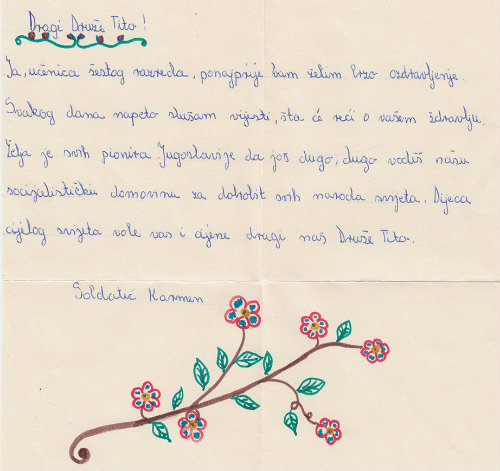 Dragi Druže Tito!
Ja, učenica šestog razreda, ponajprije vam želim brzo ozdravljenje.
Svakog dana napeto slušam vijesti, šta će reći o vašem zdravlju.
Želja je svih pionira Jugoslavije da još dugo, dugo vodiš našu
socijalističku domovinu za dobrobit svih naroda svijeta. Djeca
cijelog svijeta vole vas i cijene dragi naš Druže Tito.
Soldatić Karmen